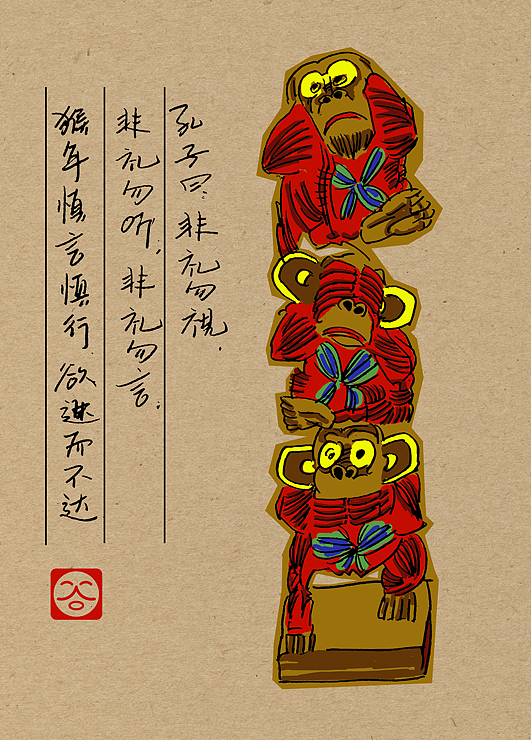 孔子曰:非礼勿視,
非礼勿听,非礼勿言.
猴年慎言慎行.欲速而不达